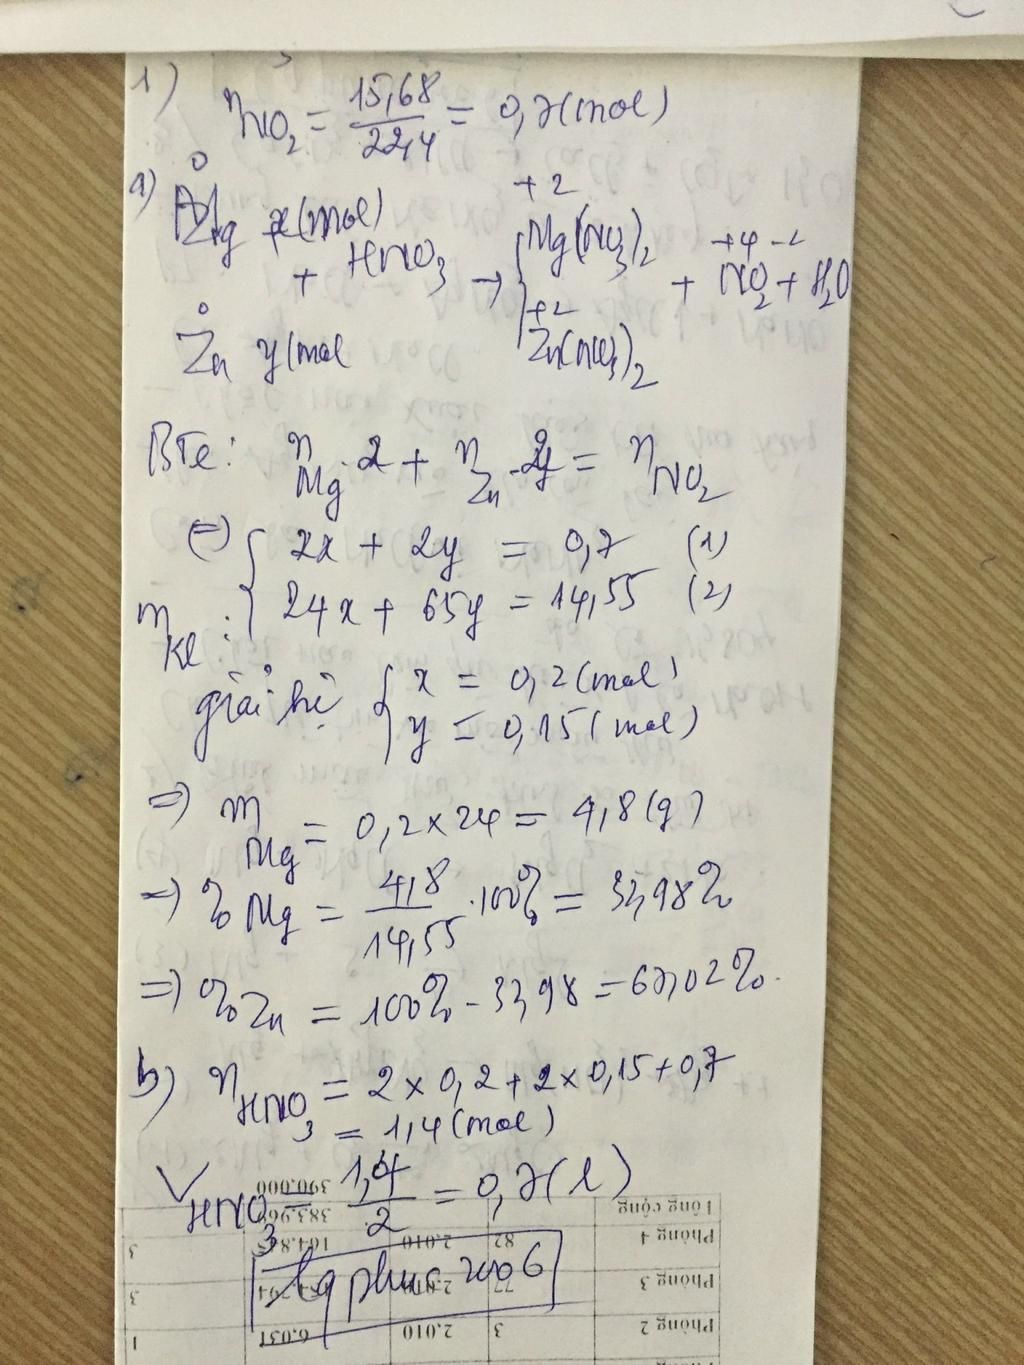 1)
nNO₂ = 15,68/22,4 = 0,7(mol)
a) Mg⁰ x(mol) + HNO₃ → Mg⁺²(NO₃)₂ + N⁺⁴O₂⁻² + H₂O
Zn⁰ y(mol Zn⁺²(NO₃)₂
BTe: nMg.2 + nZn.2 = nNO₂
(=) { 2x + 2y = 0,7 (1)
mKl: { 24x + 65y = 14,55 (2)
giải hệ { x = 0,2(mol)
{ y = 0,15(mol)
=) mMg = 0,2×24 = 4,8(g)
=) %Mg = 4,8/14,55 .100% = 32,98%
=) %Zn = 100% - 32,98 = 67,02%.
b) nHNO₃ = 2×0,2 + 2×0,15 + 0,7
= 1,4(mol)
VHNO₃ = 1,4/2 = 0,7(l)
390.000
Tổng cộng 383.96
Phòng 4 82 2.010 164.8 3
Phòng 3 77 2.010 3
Phòng 2 3 2.010 6.031 1